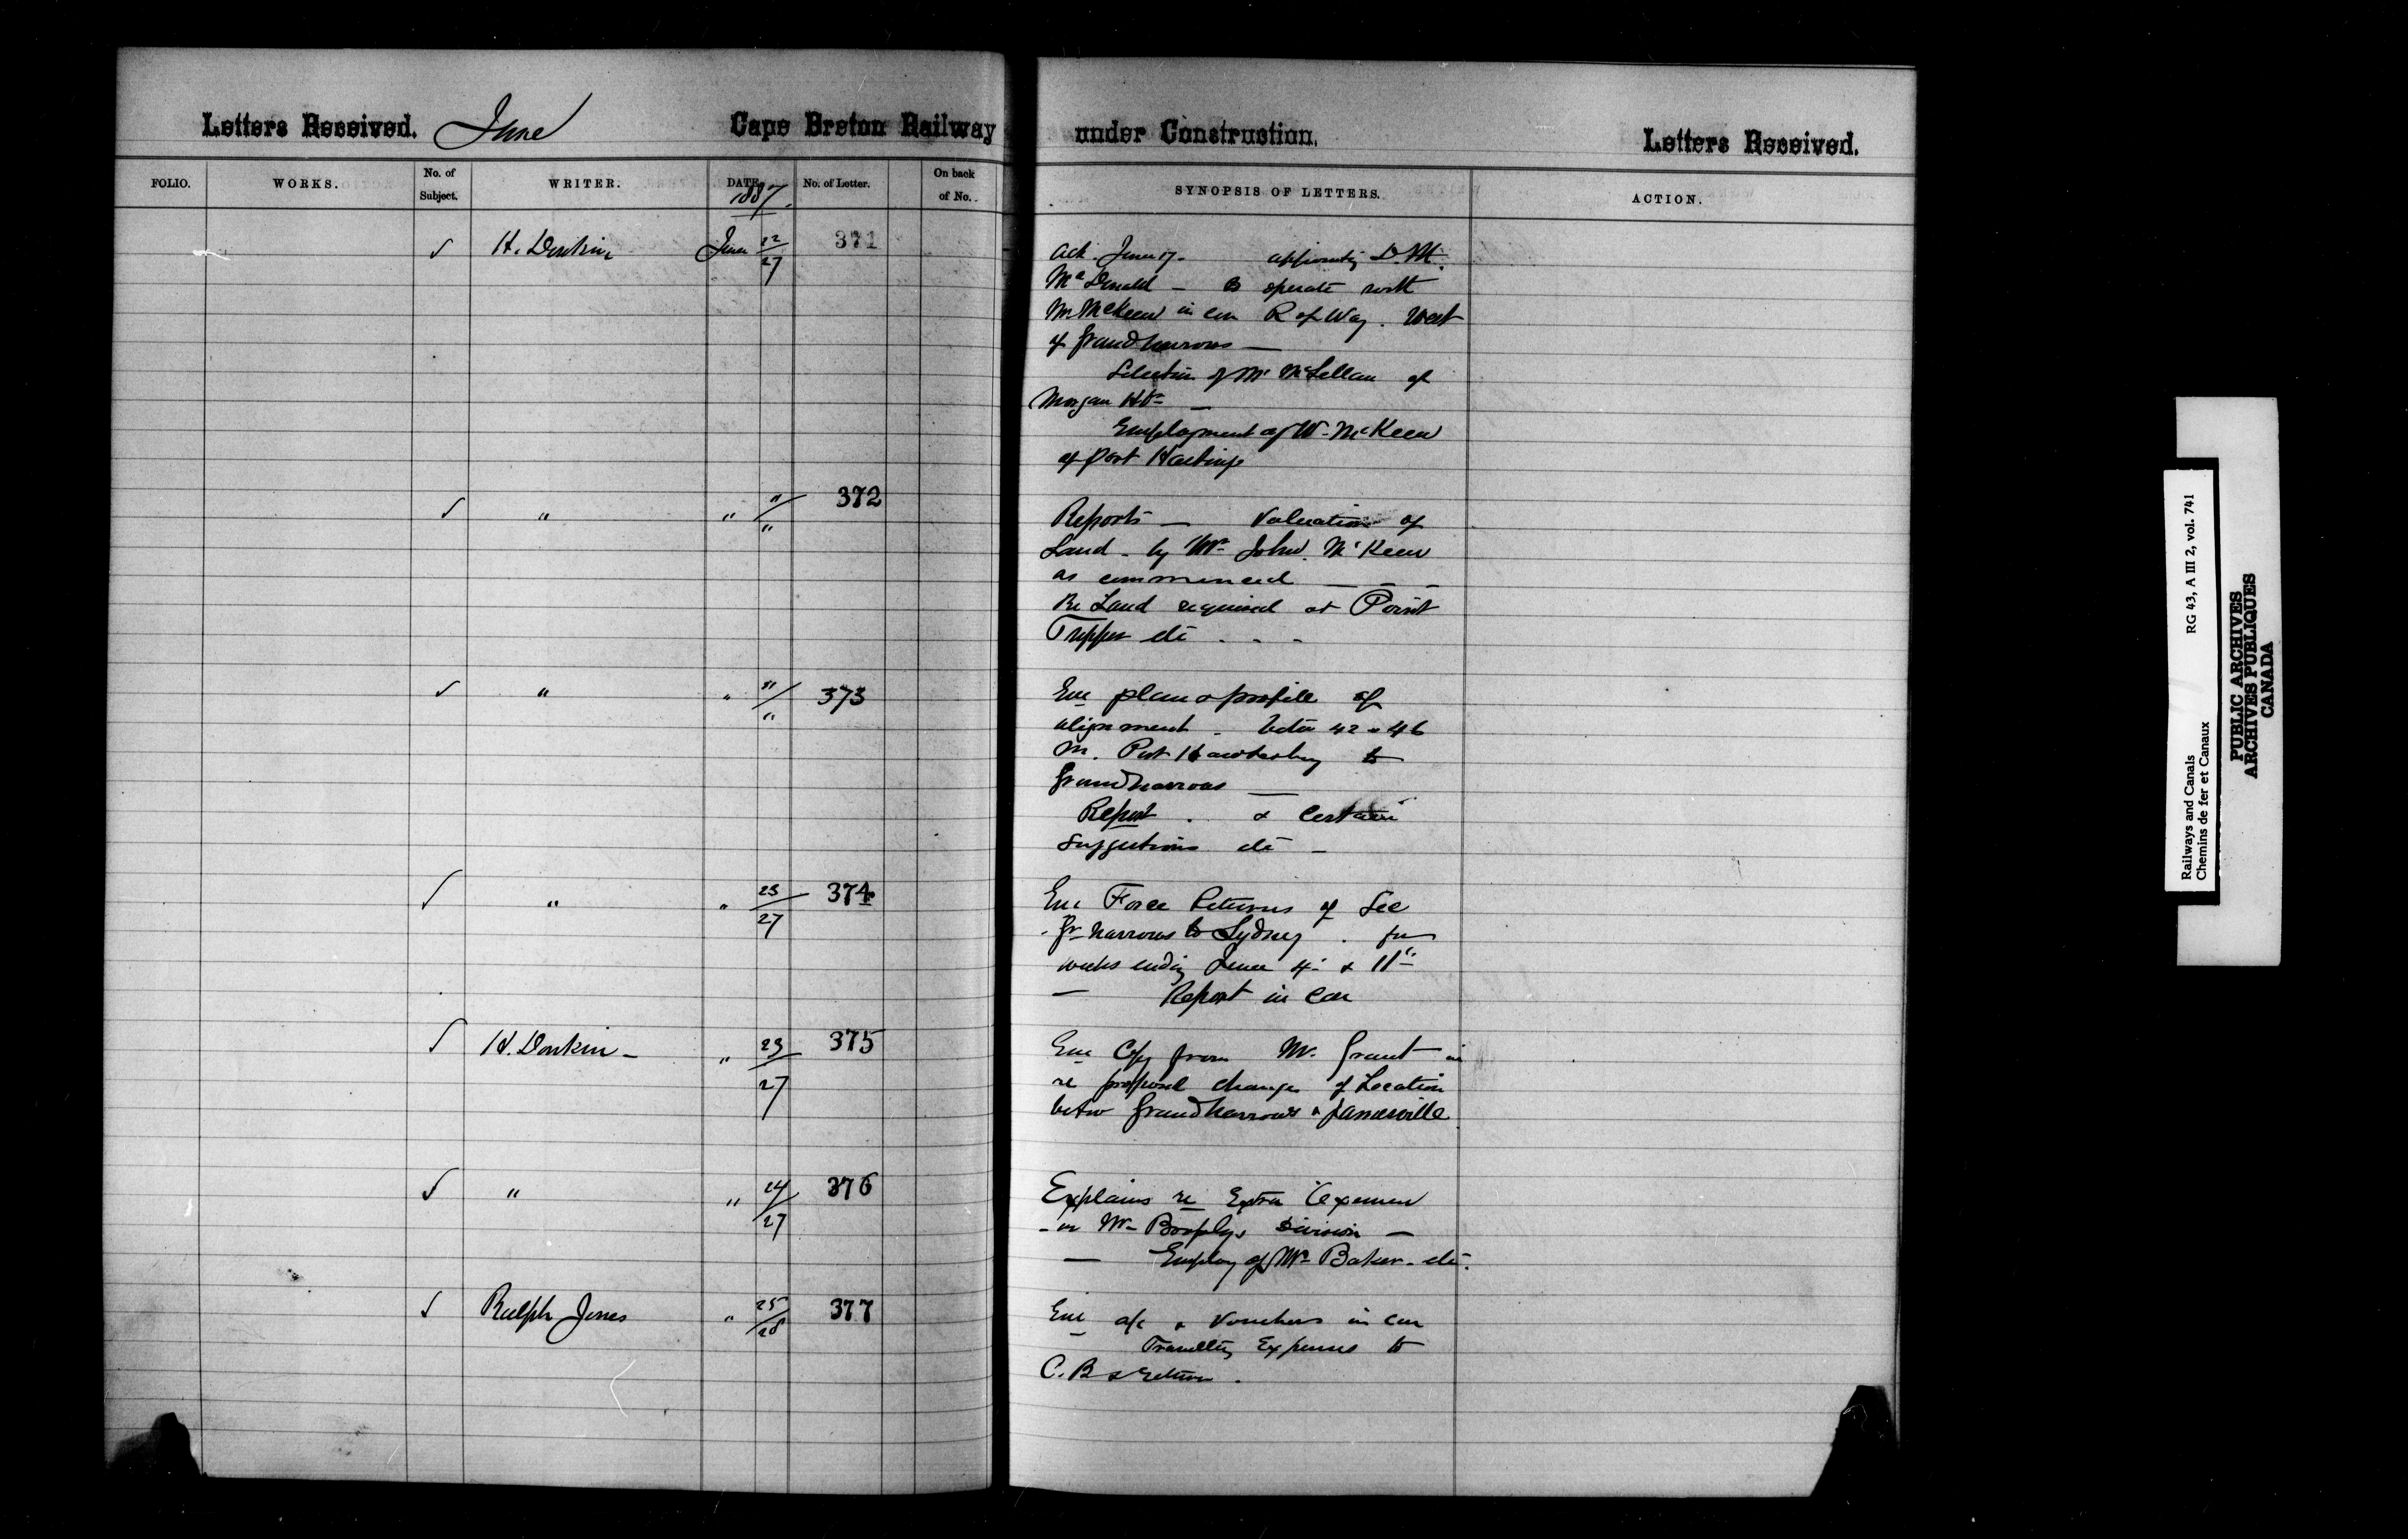 Letters Received. June Cape Breton Railway under Construction. Letters Received.
FOLIO. WORKS. No. of Subject. WRITER. DATE. No. of Letter. On back of No. SYNOPSIS OF LETTERS. ACTION.
1887
✓ H. Donkin June 22/27 371
Ack. June 17. appointing D. M.
McDonald — to operate with
Mr McKeen in con R of Way. West
of Grand Narrows —
Selection of Mr McLellan of
Morgan
Employment of W. McKeen
of Port Hastings
✓ " " "/" 372
Reports — Valuation of
Land - by Mr John McKeen
as commenced — — —
Re Land required at Point
Tupper etc . . -
✓ " " "/" 373
Enc plan & profile of
alignment . betw 42 & 46
M. Port Hawkesbury to
Grand Narrows —
Report . & certain
suggestions etc -
✓ " " 23/27 374
Enc Force Returns of Sec
Gr Narrows to Sydney . for
weeks ending June 4" & 11"
— Report in con
✓ H. Donkin - " 23/27 375
Enc Copy from Mr. Grant in
re proposed change of Location
betw Grand Narrows & Jamesville
✓ " " 24/27 376
Explains re Extra
- on Mr Division —
— Employ of Mr Baker - etc.
✓ Ralph Jones " 25/28 377
Enc a/c & Vouchers in con
Travelling Expenses to
C. B & return .
Railways and Canals RG 43, A III 2, vol. 741
Chemins de fer et Canaux
PUBLIC ARCHIVES
ARCHIVES PUBLIQUES
CANADA